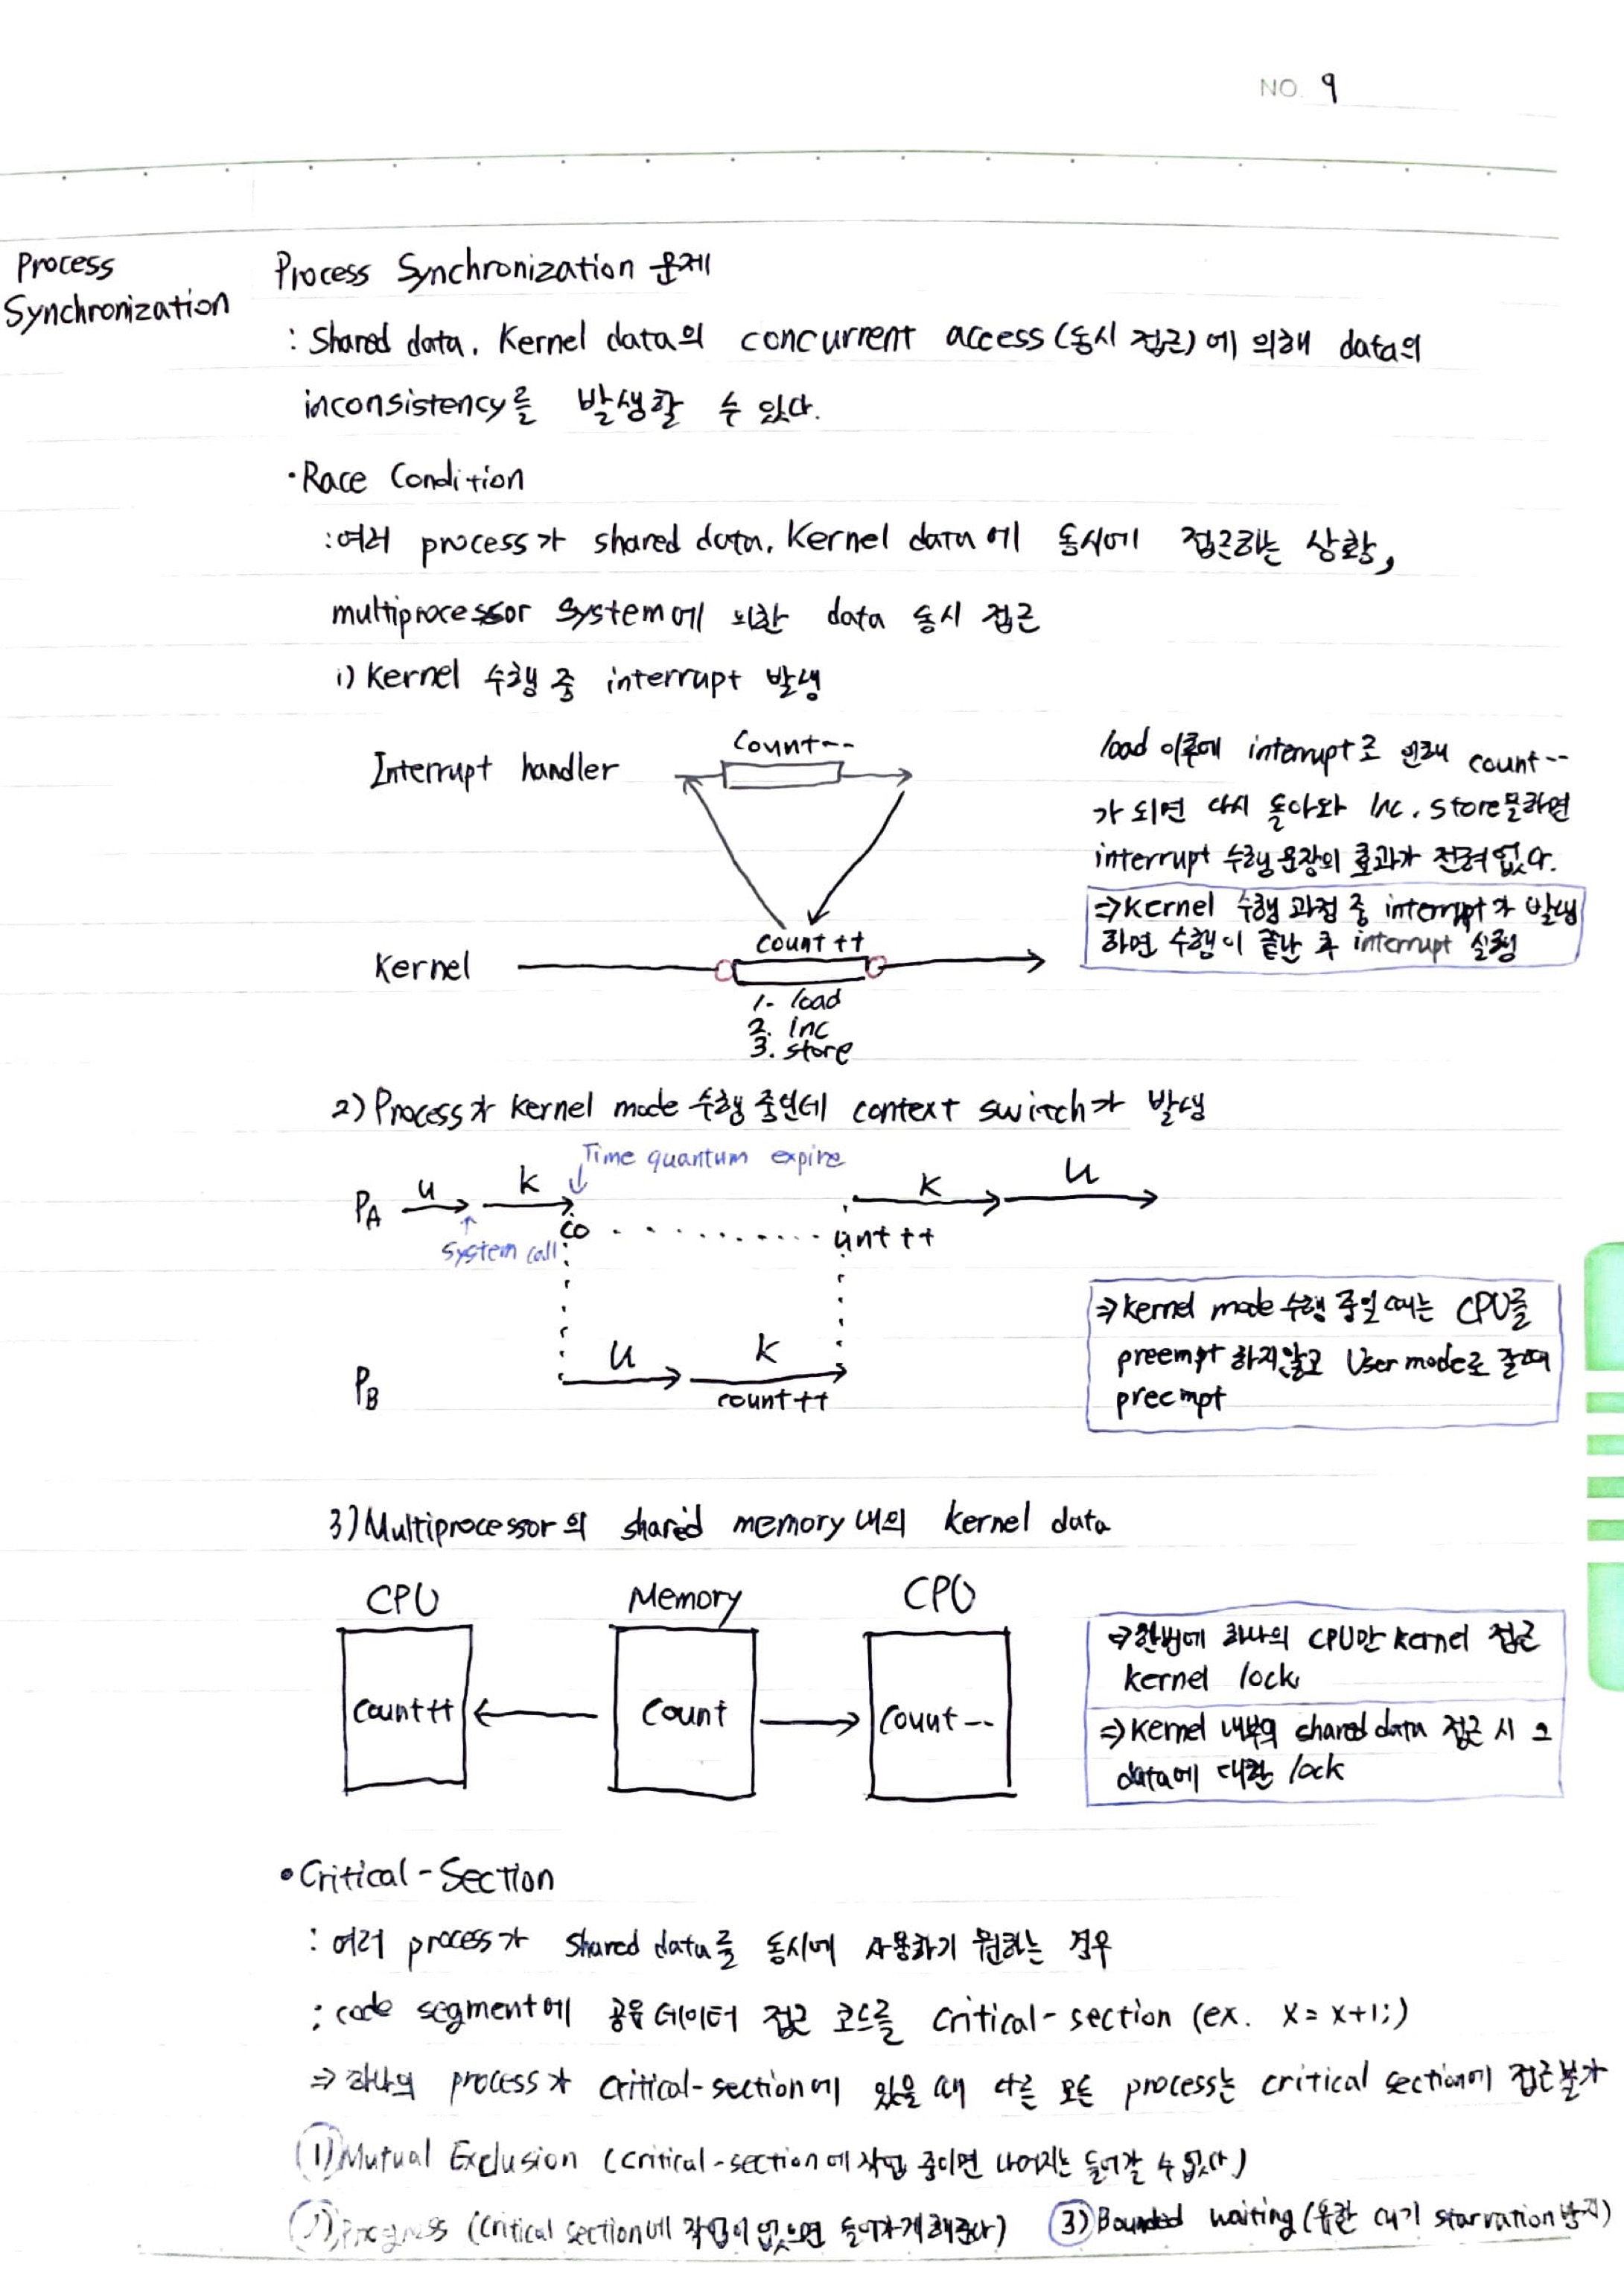 NO. 9
Process
Synchronization
Process Synchronization 문제
: Shared data, Kernel data의 concurrent access(동시 접근)에 의해 data의
inconsistency를 발생할 수 있다.
·Race Condition
:여러 process가 shared data, Kernel data에 동시에 접근하는 상황,
multiprocessor system에 의한 data 동시 접근
1) Kernel 수행 중 interrupt 발생
Interrupt handler
Count--
Kernel
count++
1. load
2. inc
3. store
load 이후에 interrupt로 인해 count--
가 되면 다시 돌아와 inc, store로하면
interrupt 수행 문장의 효과가 전혀 없다.
⇒Kernel 수행 과정 중 interrupt가 발생
하면 수행이 끝난 후 interrupt 실행
2) Process가 Kernel mode 수행 중인데 context switch가 발생
Time quantum expire
PA u k K u
System call
co ........... unt++
PB u k
count++
⇒Kernel mode 수행 중일 때는 CPU를
preempt 하지않고 User mode로 갈때
preempt
3) Multiprocessor의 shared memory 내의 kernel data
CPU Memory CPU
Count++ Count Count--
⇒한번에 하나의 CPU만 Kernel 접근
kernel lock
⇒Kernel 내부의 shared data 접근 시 그
data에 대한 lock
•Critical-Section
: 여러 process가 shared data를 동시에 사용하기 원하는 경우
: code segment에 공유 데이터 접근 코드를 critical-section (ex. x = x+1;)
⇒ 하나의 process가 critical-section에 있을 때 다른 모든 process는 critical section에 접근불가
1) Mutual Exclusion (critical-section에 작업 중이면 나머지는 들어갈 수 없다)
2) Progress (critical section에 작업이 없으면 들어가게 해준다) 3) Bounded waiting (유한 대기 starvation 방지)